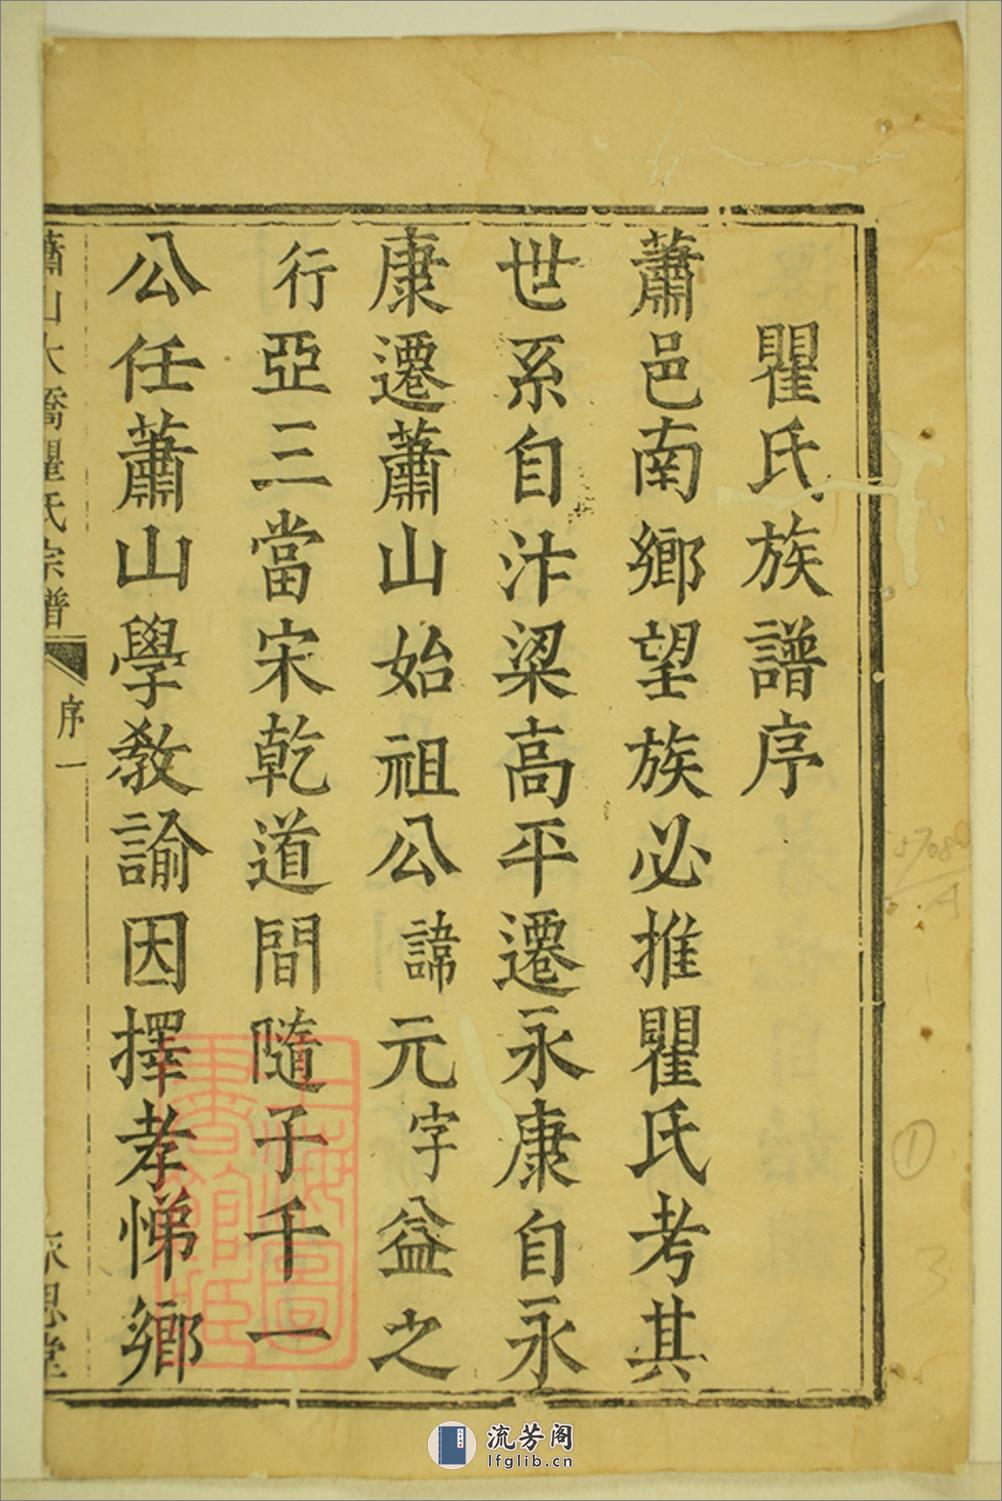 瞿氏族譜序
蕭邑南鄉望族必推瞿氏考其
世系自汴梁高平遷永康自永
康遷蕭山始祖公諱元字益之
行亞三當宋乾道間隨子千一
公任蕭山學教諭因擇孝悌鄉
蕭山大橋瞿氏宗譜
序一
永思堂
上海圖書館藏
5708
①
3
流芳阁
lfglib.cn